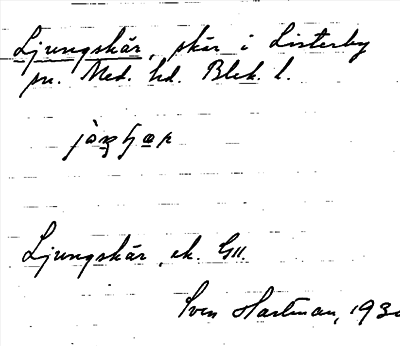 Ljungskär, skär i Listerby
sn. Med. hd. Blek. l.
Ljungskär, ek. G11.
Sven Hartman, 193